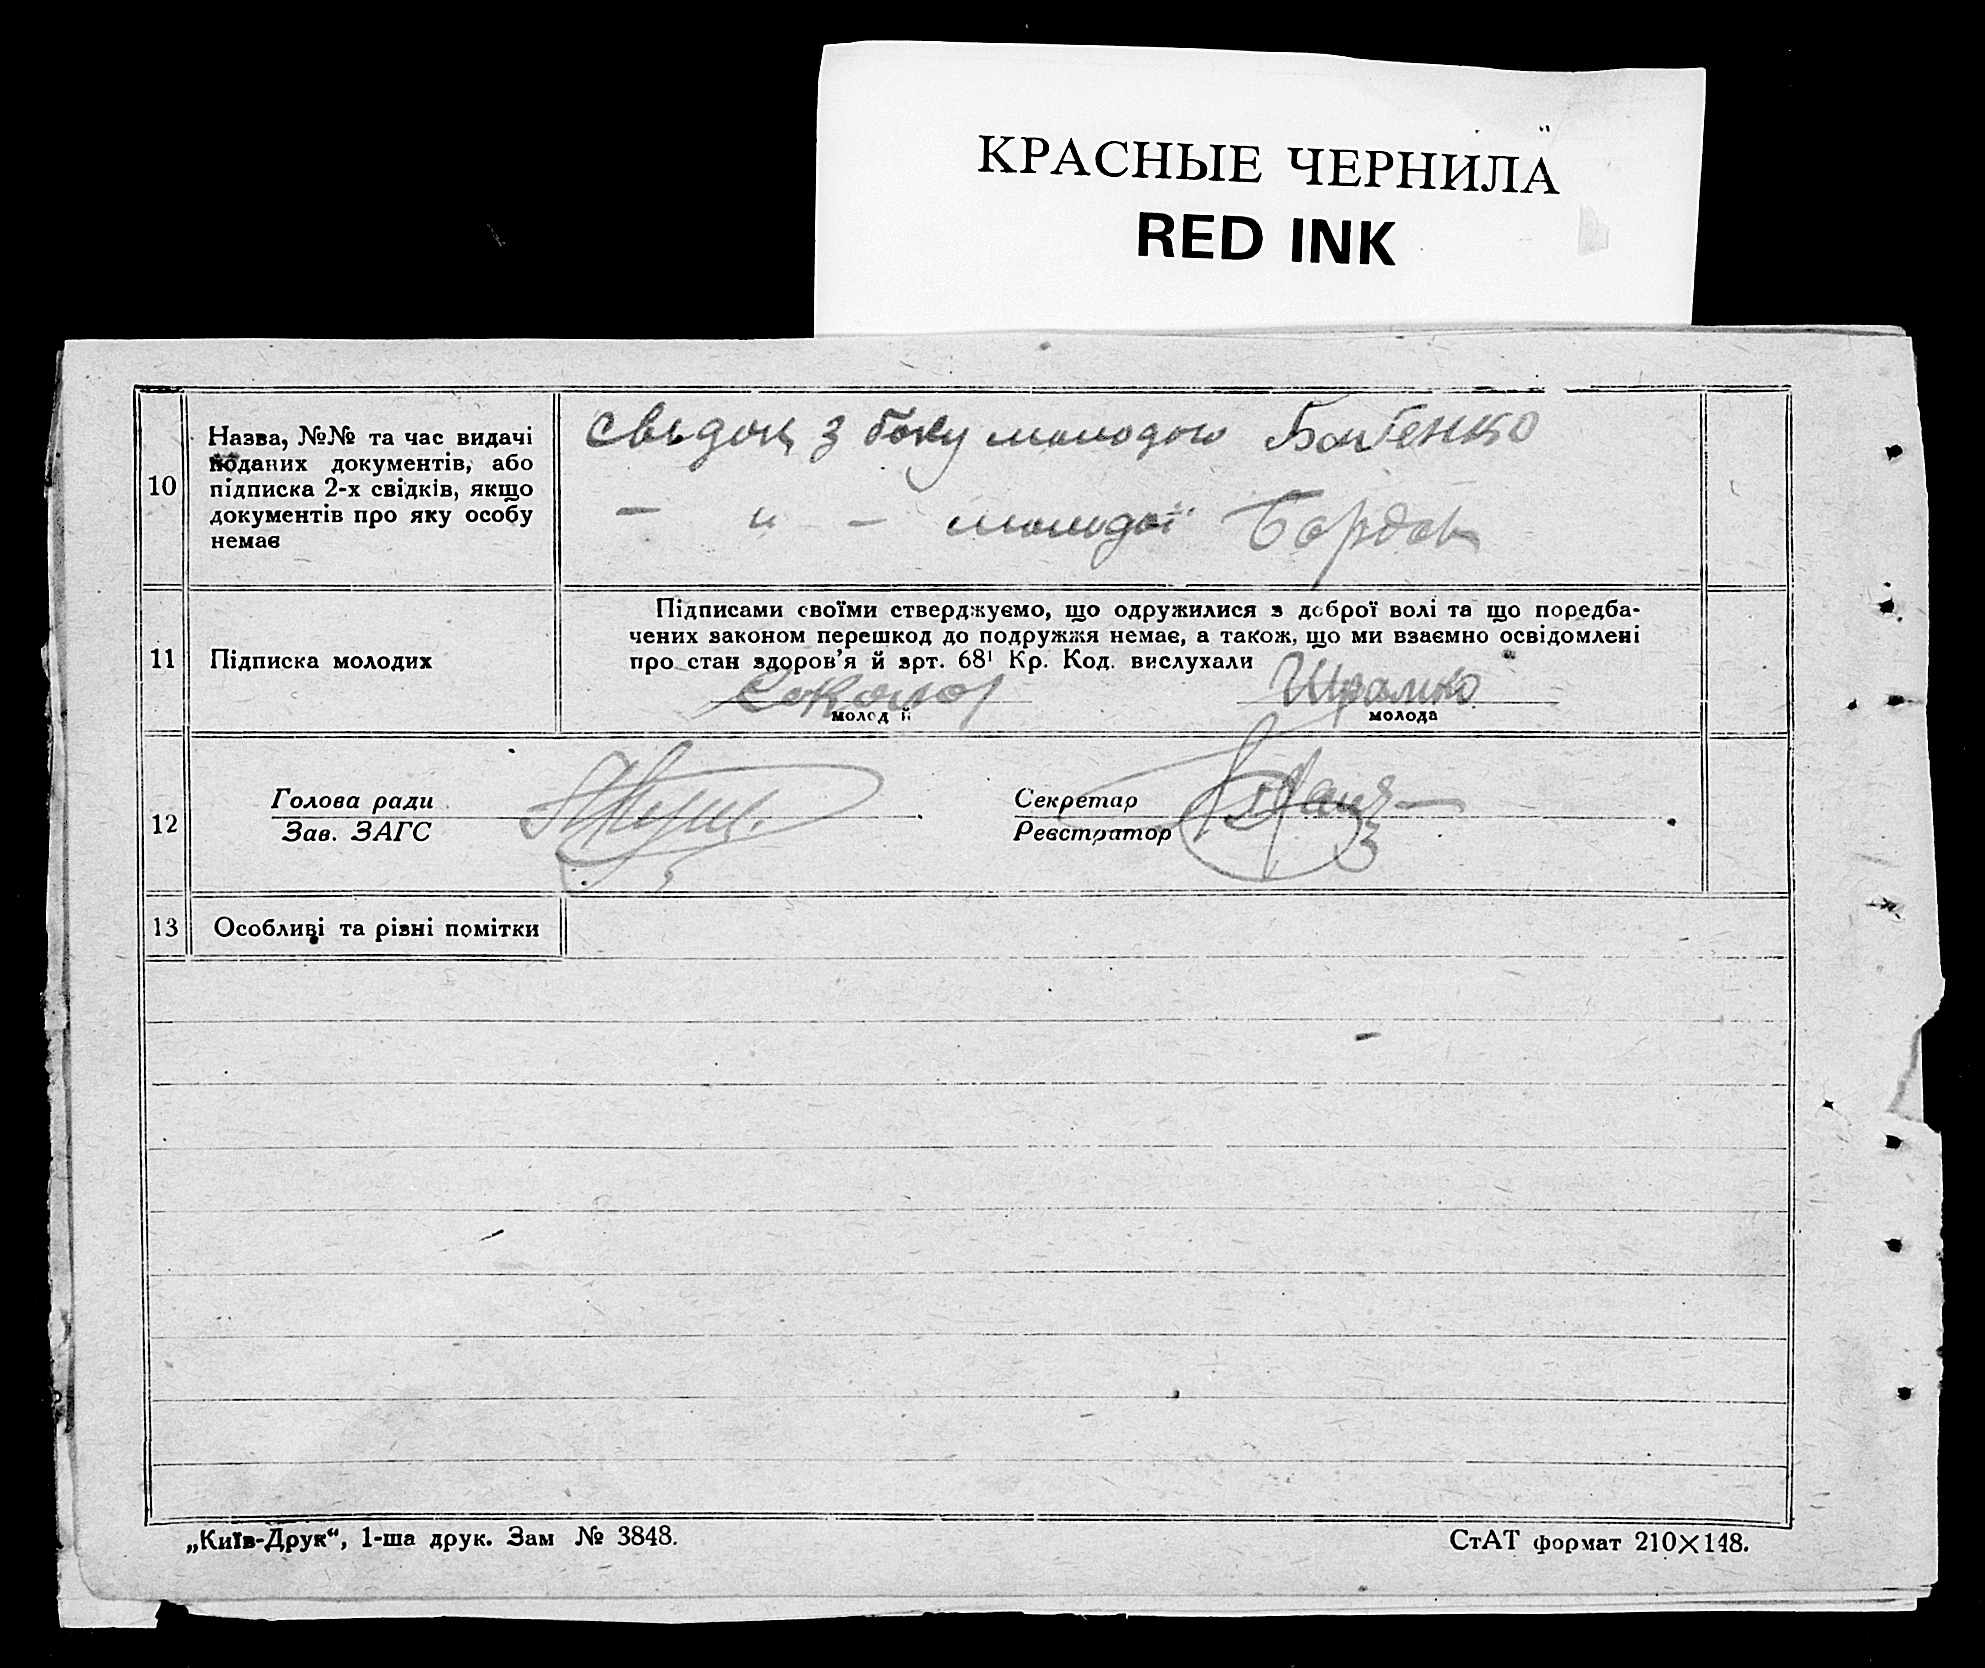 КРАСНЫЕ ЧЕРНИЛА
RED INK
10
Назва, №№ та час видачі
поданих документів, або
підписка 2-х свідків, якщо
документів про яку особу
немає
свьдок з боку молодого
— " — молодої
11
Підписка молодих
Підписами своїми стверджуємо, що одружилися з доброї волі та що поредба-
чених законом перешкод до подружжя немає, а також, що ми взаємно освідомлені
про стан здоров'я й арт. 68¹ Кр. Код. вислухали
Шрамко
молодий
молода
12
Голова ради
Зав. ЗАГС
Секретар
Реєстратор
13
Особливі та різні помітки
„Київ-Друк“, 1-ша друк. Зам № 3848.
СтАТ формат 210×148.